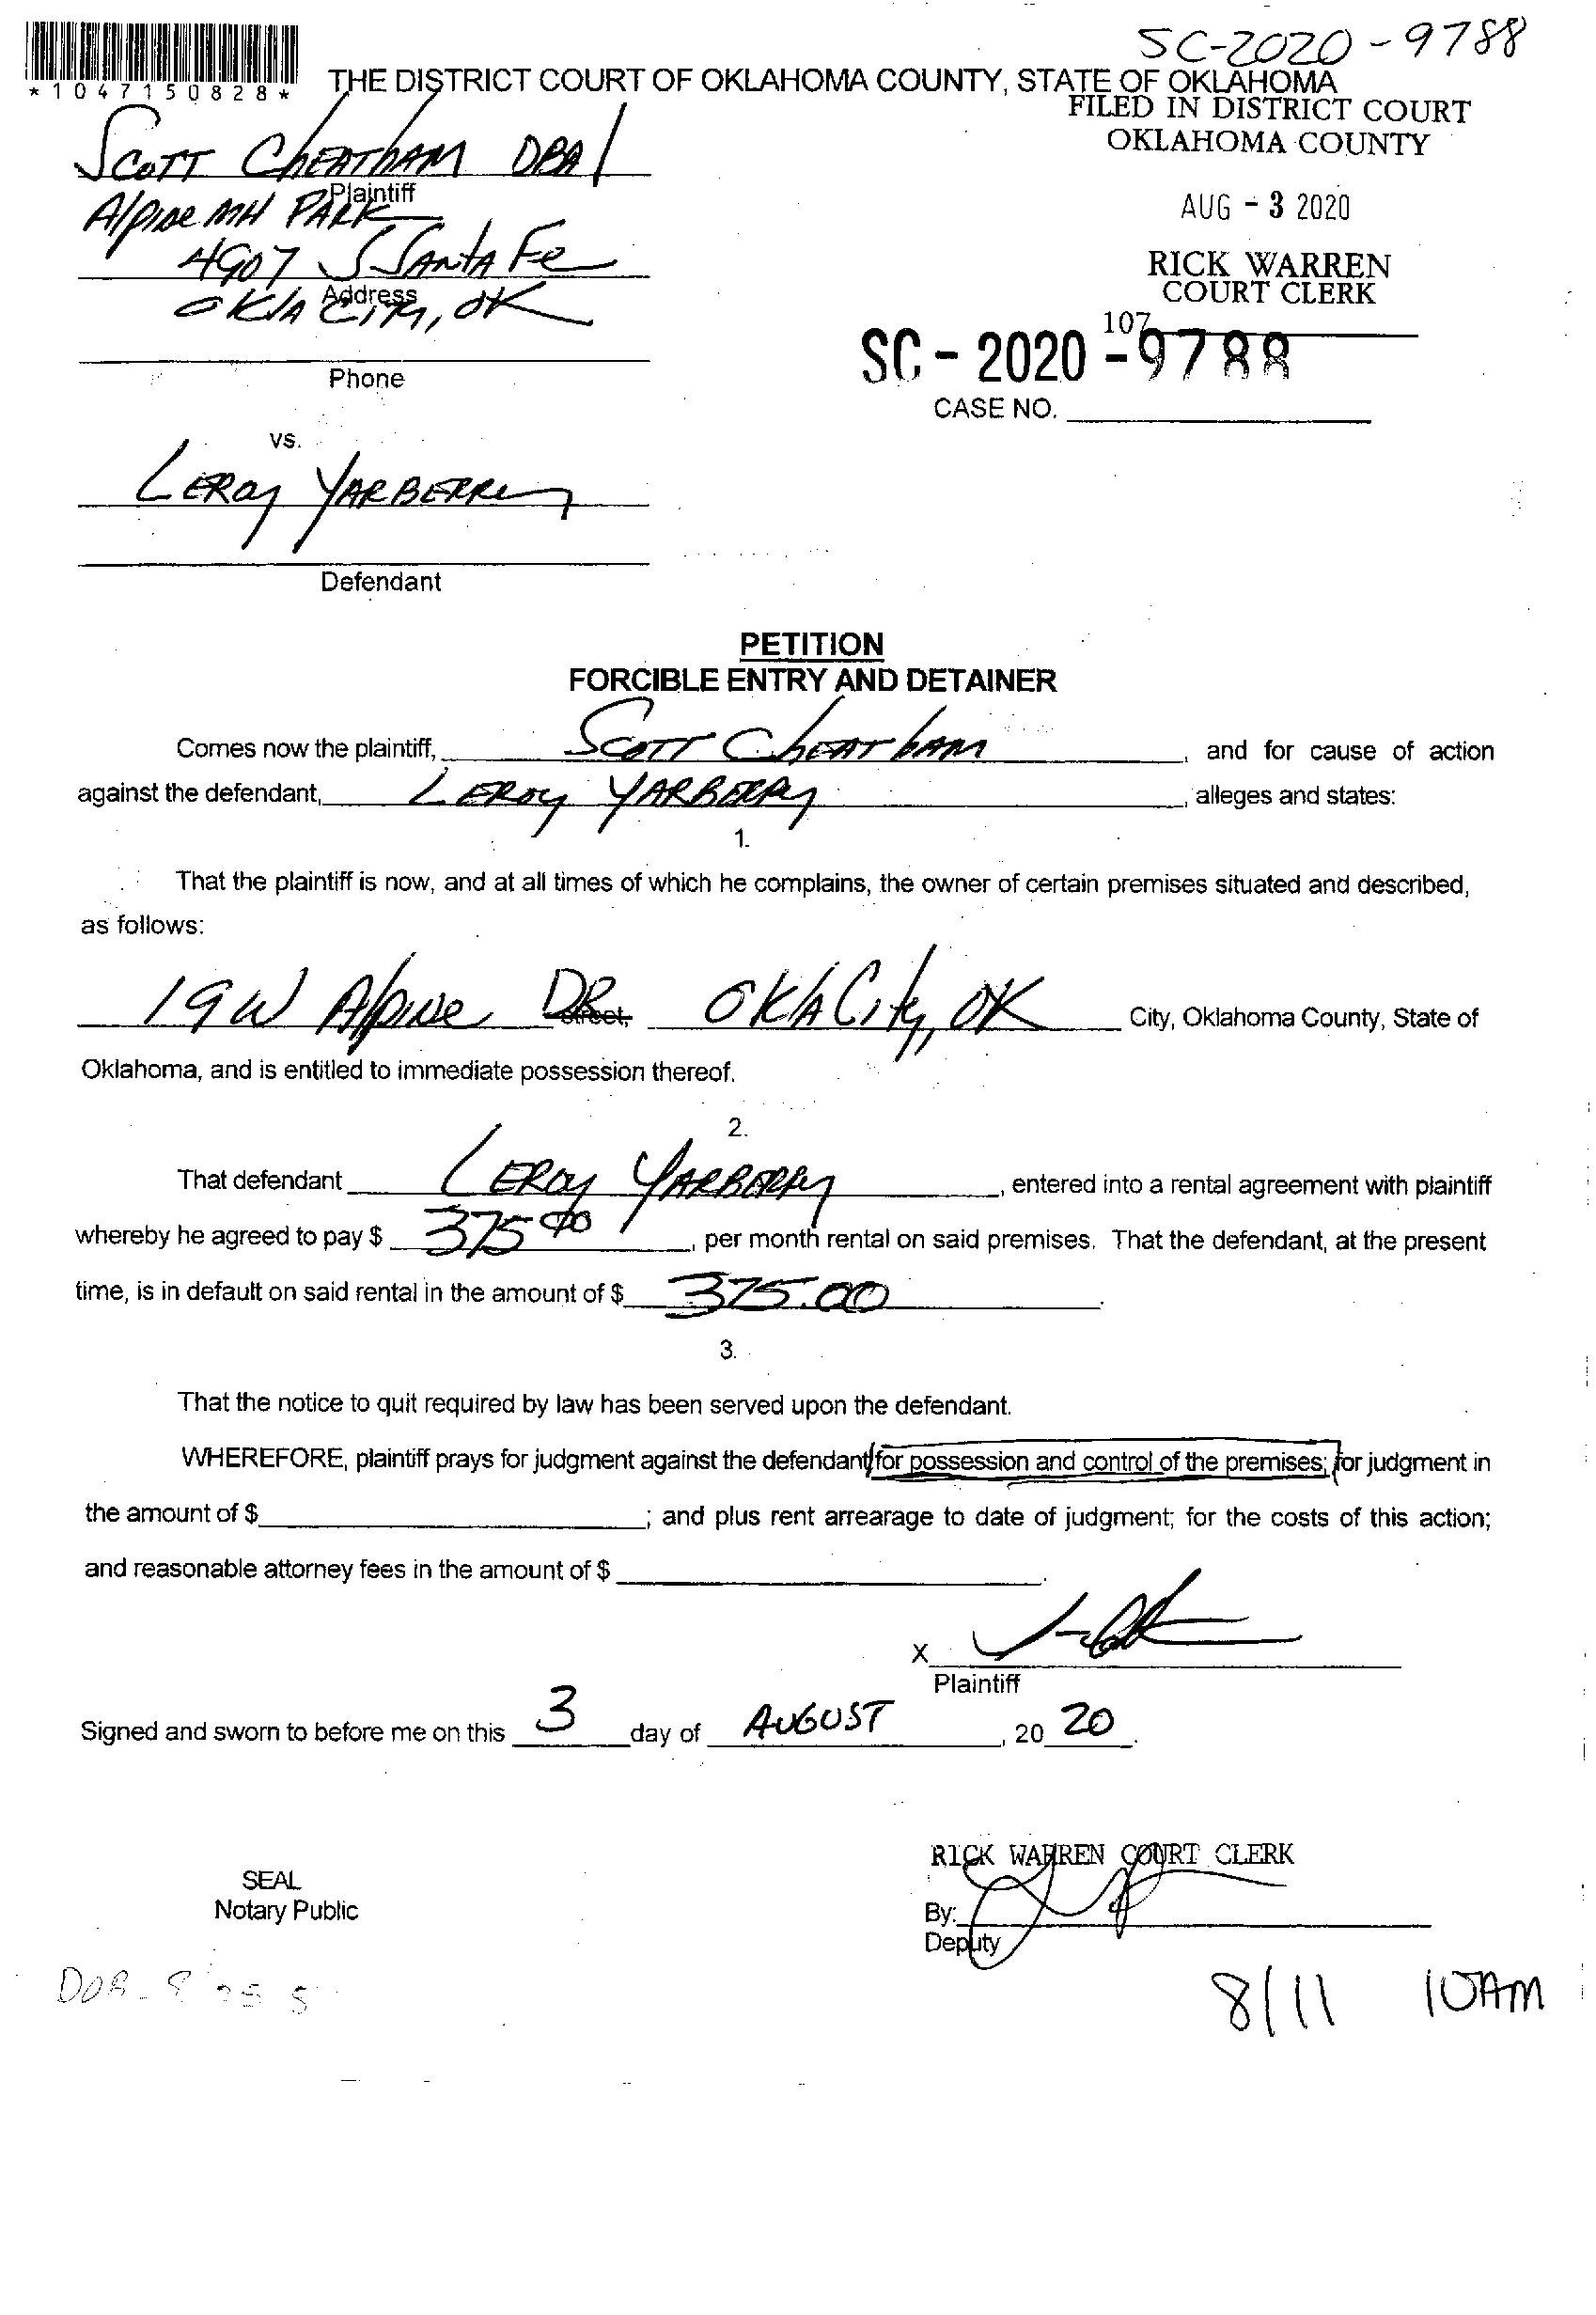 SC-2020-9788
*1047150828*
THE DISTRICT COURT OF OKLAHOMA COUNTY, STATE OF OKLAHOMA
FILED IN DISTRICT COURT
OKLAHOMA COUNTY
SCOTT CHEATHAM DBA/
Plaintiff
Alpine MH PARK
AUG - 3 2020
4907 S SANTA Fe
Address
OKLA CITY, OK
RICK WARREN
COURT CLERK
107
SC - 2020 - 9788
Phone
CASE NO.
vs.
LEROY YARBERRY
Defendant
PETITION
FORCIBLE ENTRY AND DETAINER
Comes now the plaintiff, SCOTT CHEATHAM, and for cause of action
against the defendant, LEROY YARBERRY, alleges and states:
1.
That the plaintiff is now, and at all times of which he complains, the owner of certain premises situated and described,
as follows:
19 W Alpine DR. Street, OKLA City, OK City, Oklahoma County, State of
Oklahoma, and is entitled to immediate possession thereof.
2.
That defendant LEROY YARBERRY, entered into a rental agreement with plaintiff
whereby he agreed to pay $ 375.00, per month rental on said premises. That the defendant, at the present
time, is in default on said rental in the amount of $ 375.00.
3.
That the notice to quit required by law has been served upon the defendant.
WHEREFORE, plaintiff prays for judgment against the defendant for possession and control of the premises; for judgment in
the amount of $ ; and plus rent arrearage to date of judgment; for the costs of this action;
and reasonable attorney fees in the amount of $ .
X
Plaintiff
Signed and sworn to before me on this 3 day of AUGUST, 20 20.
RICK WARREN COURT CLERK
SEAL
Notary Public
By:
Deputy
8/11 10AM